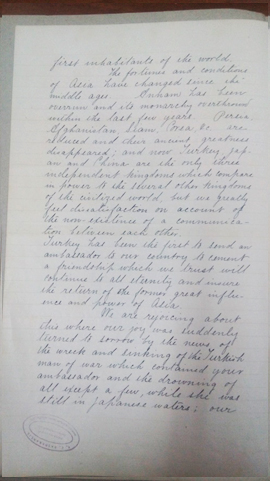 first inhabitants of the world.
The fortunes and conditions
of Asia have changed since the
middle ages. has been
overrun and its monarchy overthrown
within the last few years. Persia,
Afghanistan, Siam, Corea &c. are
reduced and their ancient greatness
disappeared; and now Turkey, Jap-
an and China are the only three
independent kingdoms which compare
in power to the several other kingdoms
of the civilized world, but we greatly
feel dissatisfaction on account of
the non-existence of a communica-
tion between each other.
Turkey has been the first to send an
ambassador to our country to cement
a friendship which we trust will
continue to all eternity and insure
the return of the former great influ-
ence and power of Asia.
We are rejoicing about
this where our joy was suddenly
turned to sorrow by the news, of
the wreck and sinking of the Turkish
man of war which contained your
ambassador and the drowning of
all except a few, while she was
still in Japanese waters; our